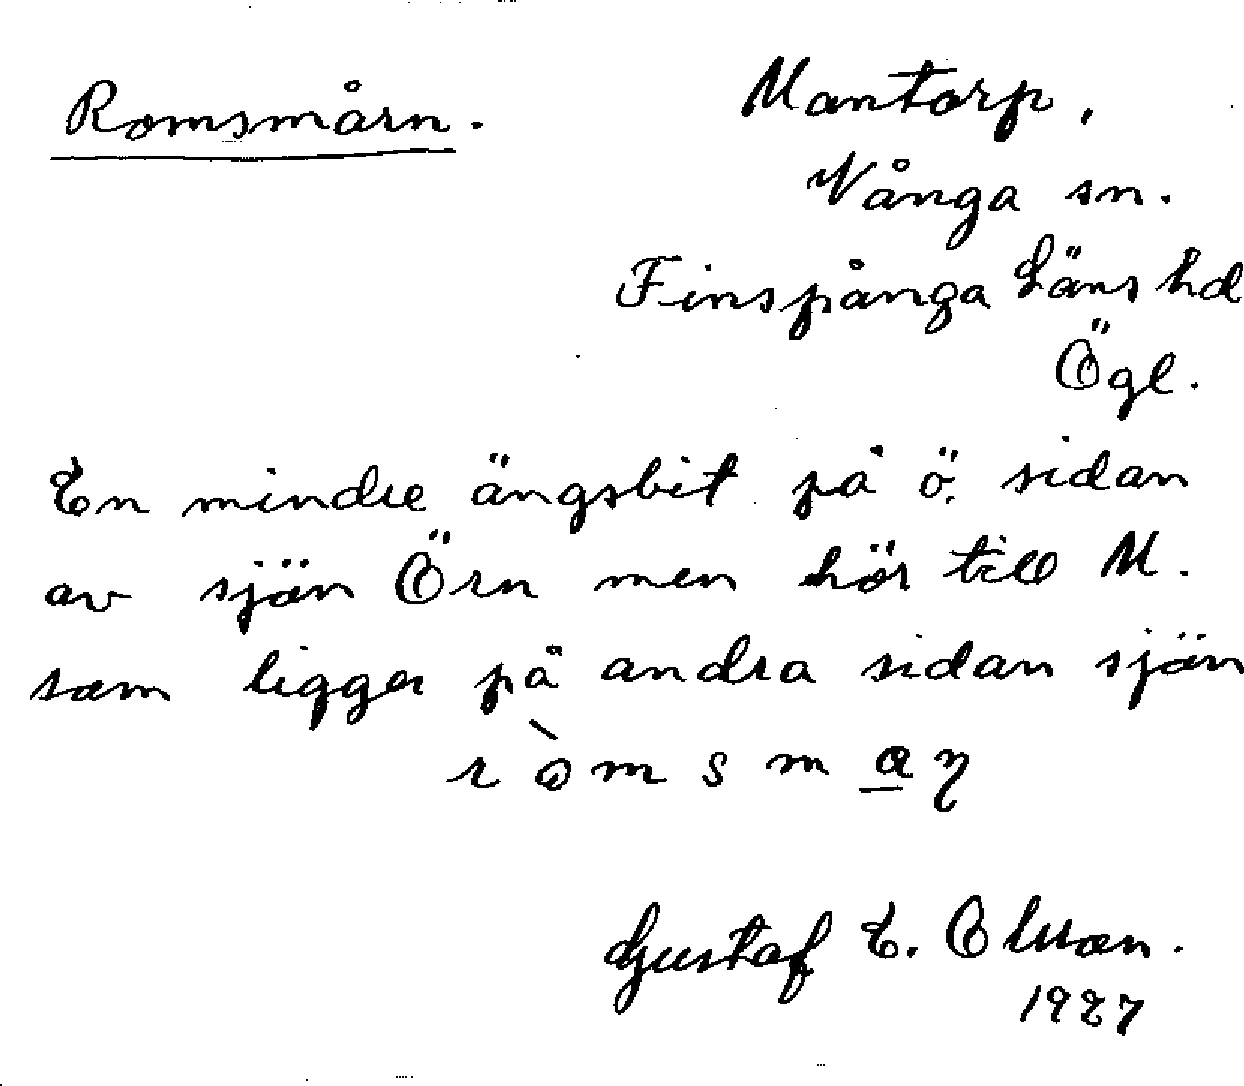 Romsmårn.
Mantorp,
Vånga sn.
Finspånga läns hd
Ögl.
En mindre ängsbit på ö. sidan
av sjön Örn men hör till M.
som ligger på andra sidan sjön
ròmsmaꞑ
Gustaf E. Olsson.
1927